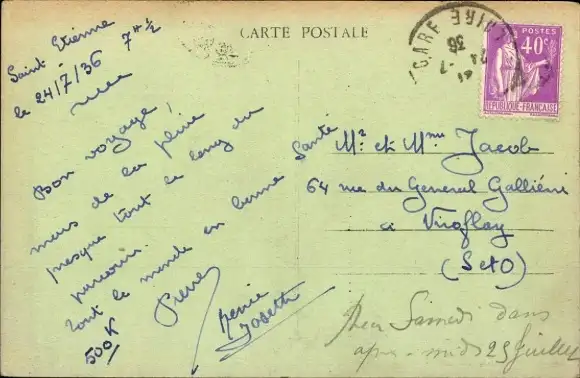 CARTE POSTALE
Saint Etienne
le 24/7/36 7H½
Bon voyage,
mais de la pluie
presque tout le long du
parcours.
Tout le monde en bonne santé
500K
Pierre
Josette
GARE
LOIRE
36
POSTES
40c
REPUBLIQUE-FRANCAISE
Mr et Mme Jacob
64 rue du General Galliéni
a Viroflay
(S et O)
Samedi dans
après-midi 25 Juillet